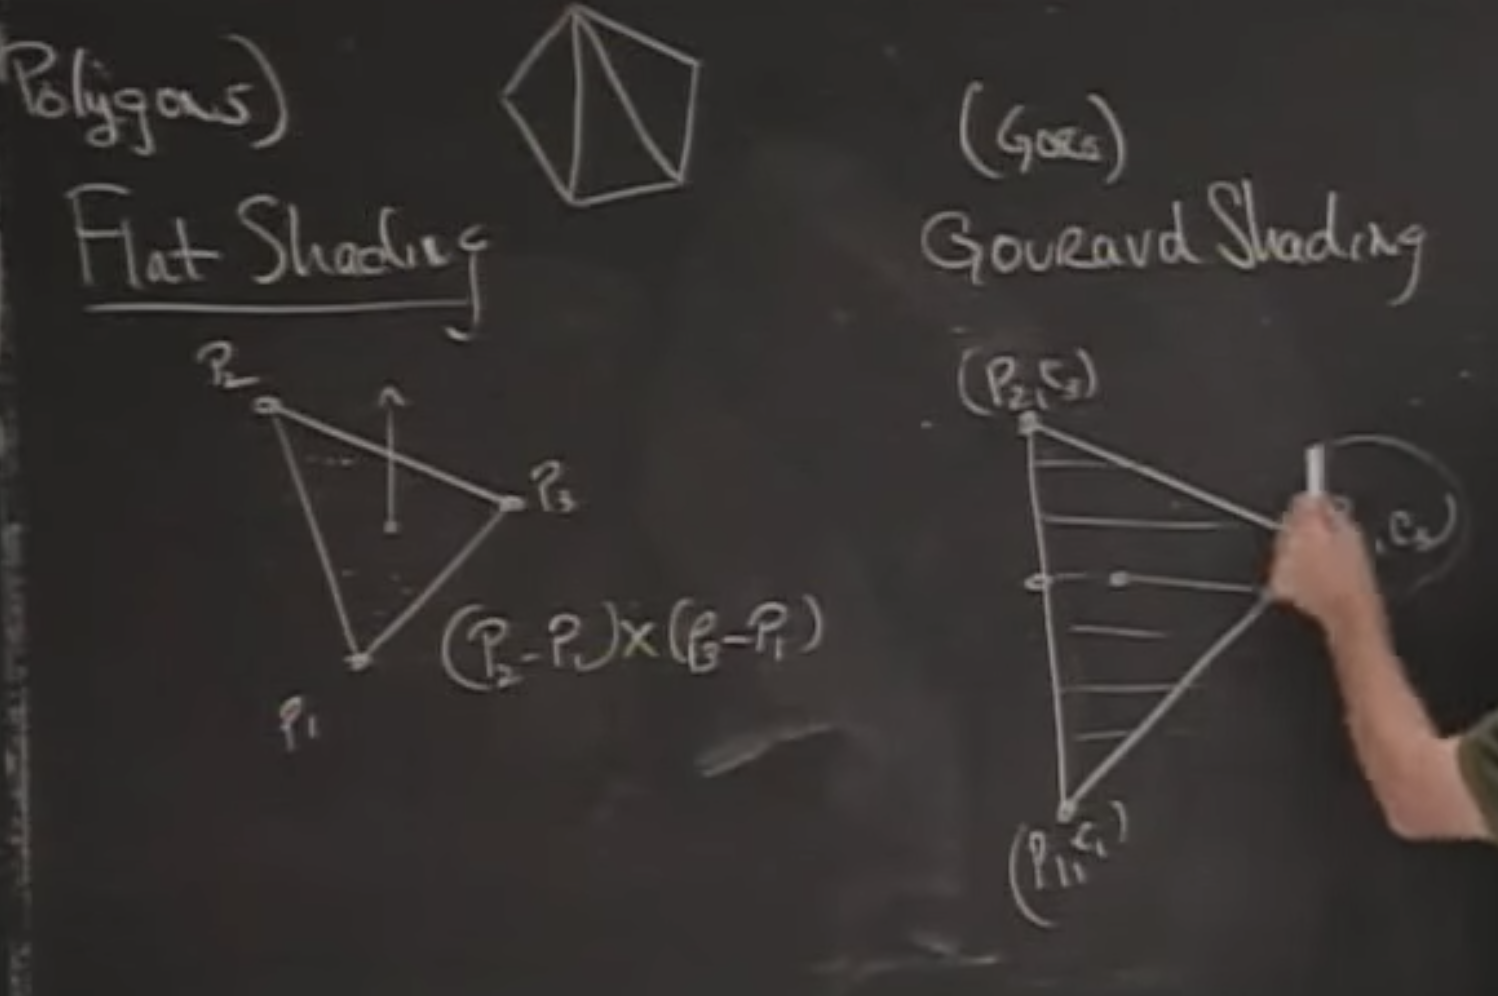 Polygons)
Flat Shading
P2
P3
(P2-P1)×(P3-P1)
P1
Gouraud Shading
(P2, C3)
, C3)
(P1, C1)